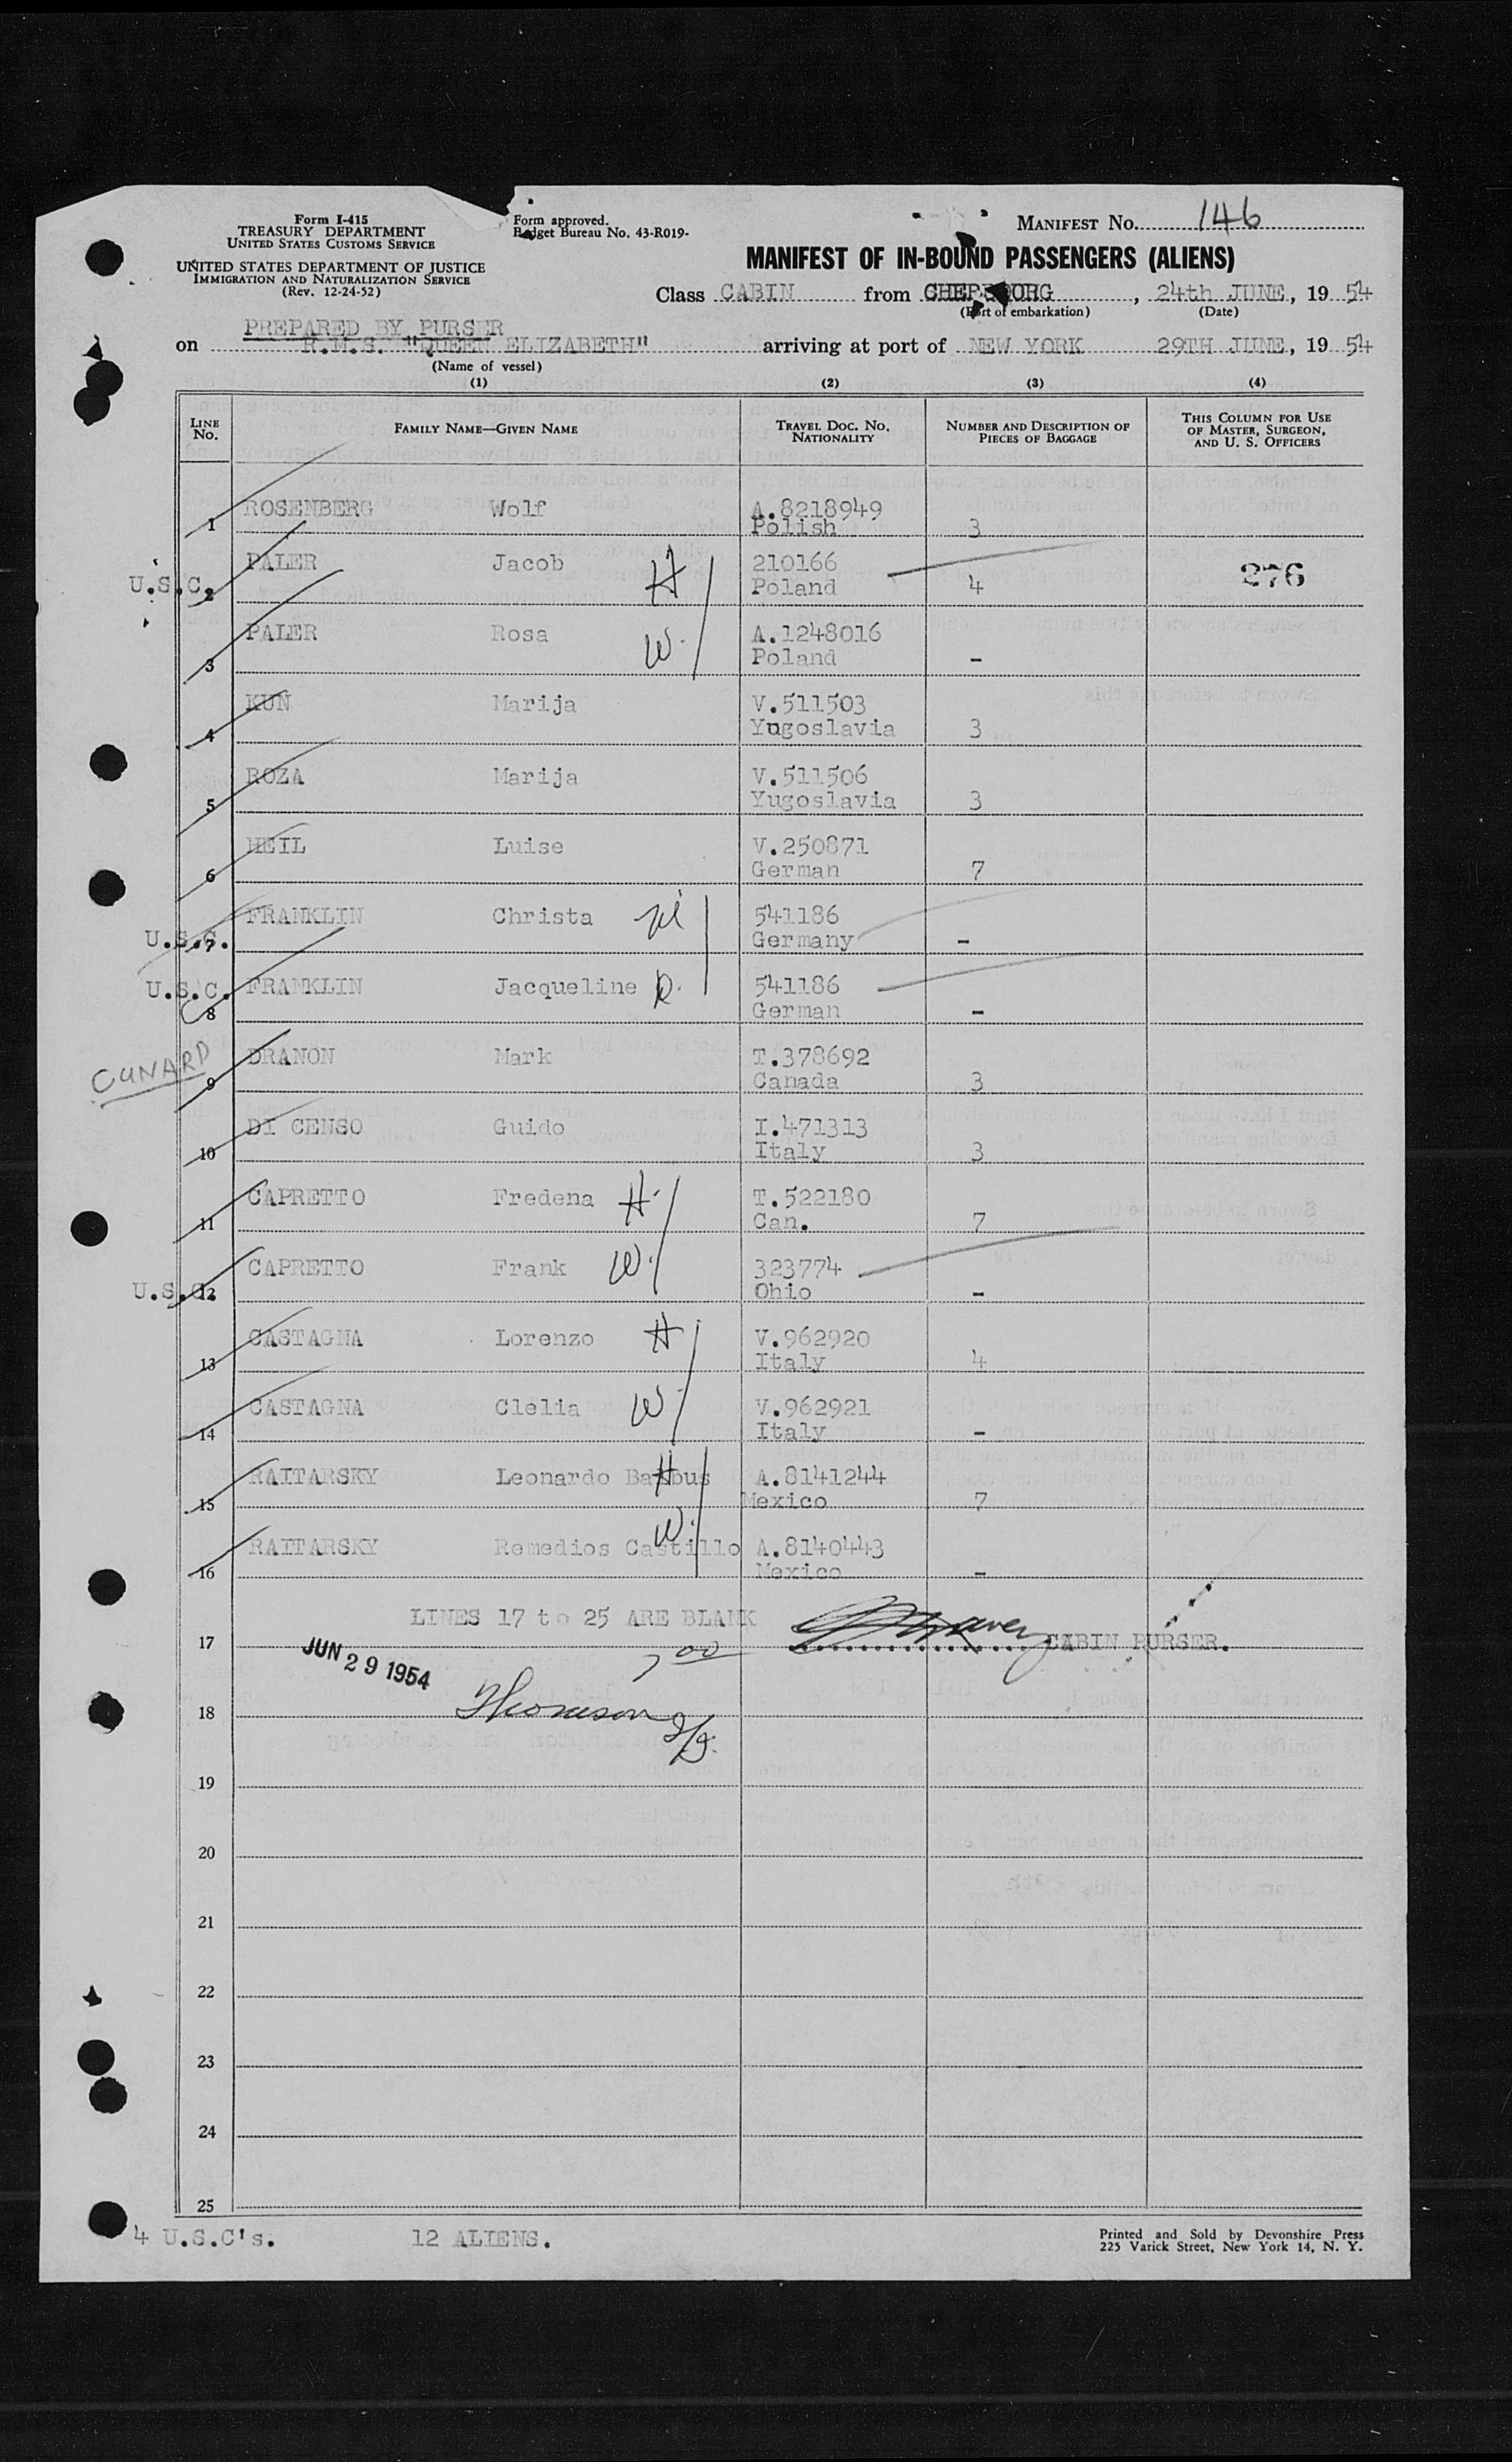 Form I-415
TREASURY DEPARTMENT
UNITED STATES CUSTOMS SERVICE
UNITED STATES DEPARTMENT OF JUSTICE
IMMIGRATION AND NATURALIZATION SERVICE
(Rev. 12-24-52)
Form approved.
Budget Bureau No. 43-R019-
MANIFEST No. 146
MANIFEST OF IN-BOUND PASSENGERS (ALIENS)
Class CABIN from CHERBOURG, 24th JUNE, 19 54
(Port of embarkation) (Date)
PREPARED BY PURSER
on R.M.S. "QUEEN ELIZABETH" arriving at port of NEW YORK 29TH JUNE, 19 54
(Name of vessel)
(1) (2) (3) (4)
LINE No. FAMILY NAME—GIVEN NAME TRAVEL DOC. NO. NATIONALITY NUMBER AND DESCRIPTION OF PIECES OF BAGGAGE THIS COLUMN FOR USE OF MASTER, SURGEON, AND U. S. OFFICERS
1 ROSENBERG Wolf A.8218949
Polish 3
U.S.C. 2 PALER Jacob H 210166
Poland 4 276
3 PALER Rosa W. A.1248016
Poland -
4 KUN Marija V.511503
Yugoslavia 3
5 ROZA Marija V.511506
Yugoslavia 3
6 HEIL Luise V.250871
German 7
U.S.C. 7 FRANKLIN Christa 541186
Germany -
U.S.C. 8 FRANKLIN Jacqueline D. 541186
German -
CUNARD 9 DRANON Mark T.378692
Canada 3
10 DI CENSO Guido I.471313
Italy 3
11 CAPRETTO Fredena H. T.522180
Can. 7
U.S.C. 12 CAPRETTO Frank W. 323774
Ohio -
13 CASTAGNA Lorenzo H V.962920
Italy 4
14 CASTAGNA Clelia W V.962921
Italy -
15 RAITARSKY Leonardo Barbus H A.8141244
Mexico 7
16 RAITARSKY Remedios Castillo W. A.8140443
Mexico -
LINES 17 to 25 ARE BLANK
17 CABIN PURSER.
JUN 29 1954 7 00
18 Thomson
19
20
21
22
23
24
25
4 U.S.C's. 12 ALIENS.
Printed and Sold by Devonshire Press
225 Varick Street, New York 14, N. Y.